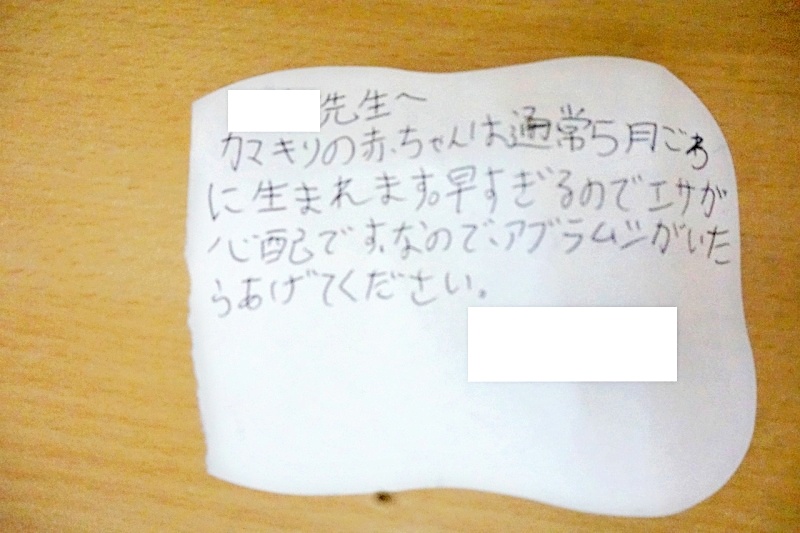 先生へ
カマキリの赤ちゃんは通常5月ごろ
に生まれます。早すぎるのでエサが
心配です。なので、アブラムシがいた
らあげてください。